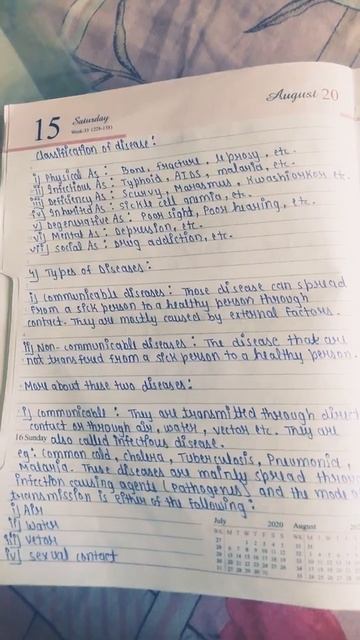 August 20
15 Saturday
Week-33 (228-138)
Classification of disease:
i) Physical As: Bone, fracture, leprosy, etc.
ii) Infectious As: Typhoid, AIDS, malaria, etc.
iii) Deficiency As: Scurvy, Marasmus, Kwashiorkor etc.
iv) Inherited As: Sickle cell animia, etc.
v) Degenerative As: Poor sight, Poor hearing, etc.
vi) Mental As: Depression, etc.
vii) Social As: Drug addiction, etc.
4) Types of Diseases:
i) Communicable diseases: Those disease can spread
from a sick person to a healthy person through
contact. They are mostly caused by external factors.
ii) Non-communicable diseases: The disease that are
not transfred from a sick person to a healthy person.
• More about these two diseases:
i) Communicable: They are transmitted through direct
contact or through air, water, vector etc. They are
16 Sunday also called infectious disease.
eg: Common cold, cholera, Tuberculosis, Pneumonia,
Malaria. These diseases are mainly spread through
infection causing agents (pathogenes) and the mode
transmission is either of the following:
i) Air
ii) water
iii) vetor
iv) sexual contact
July 2020 August